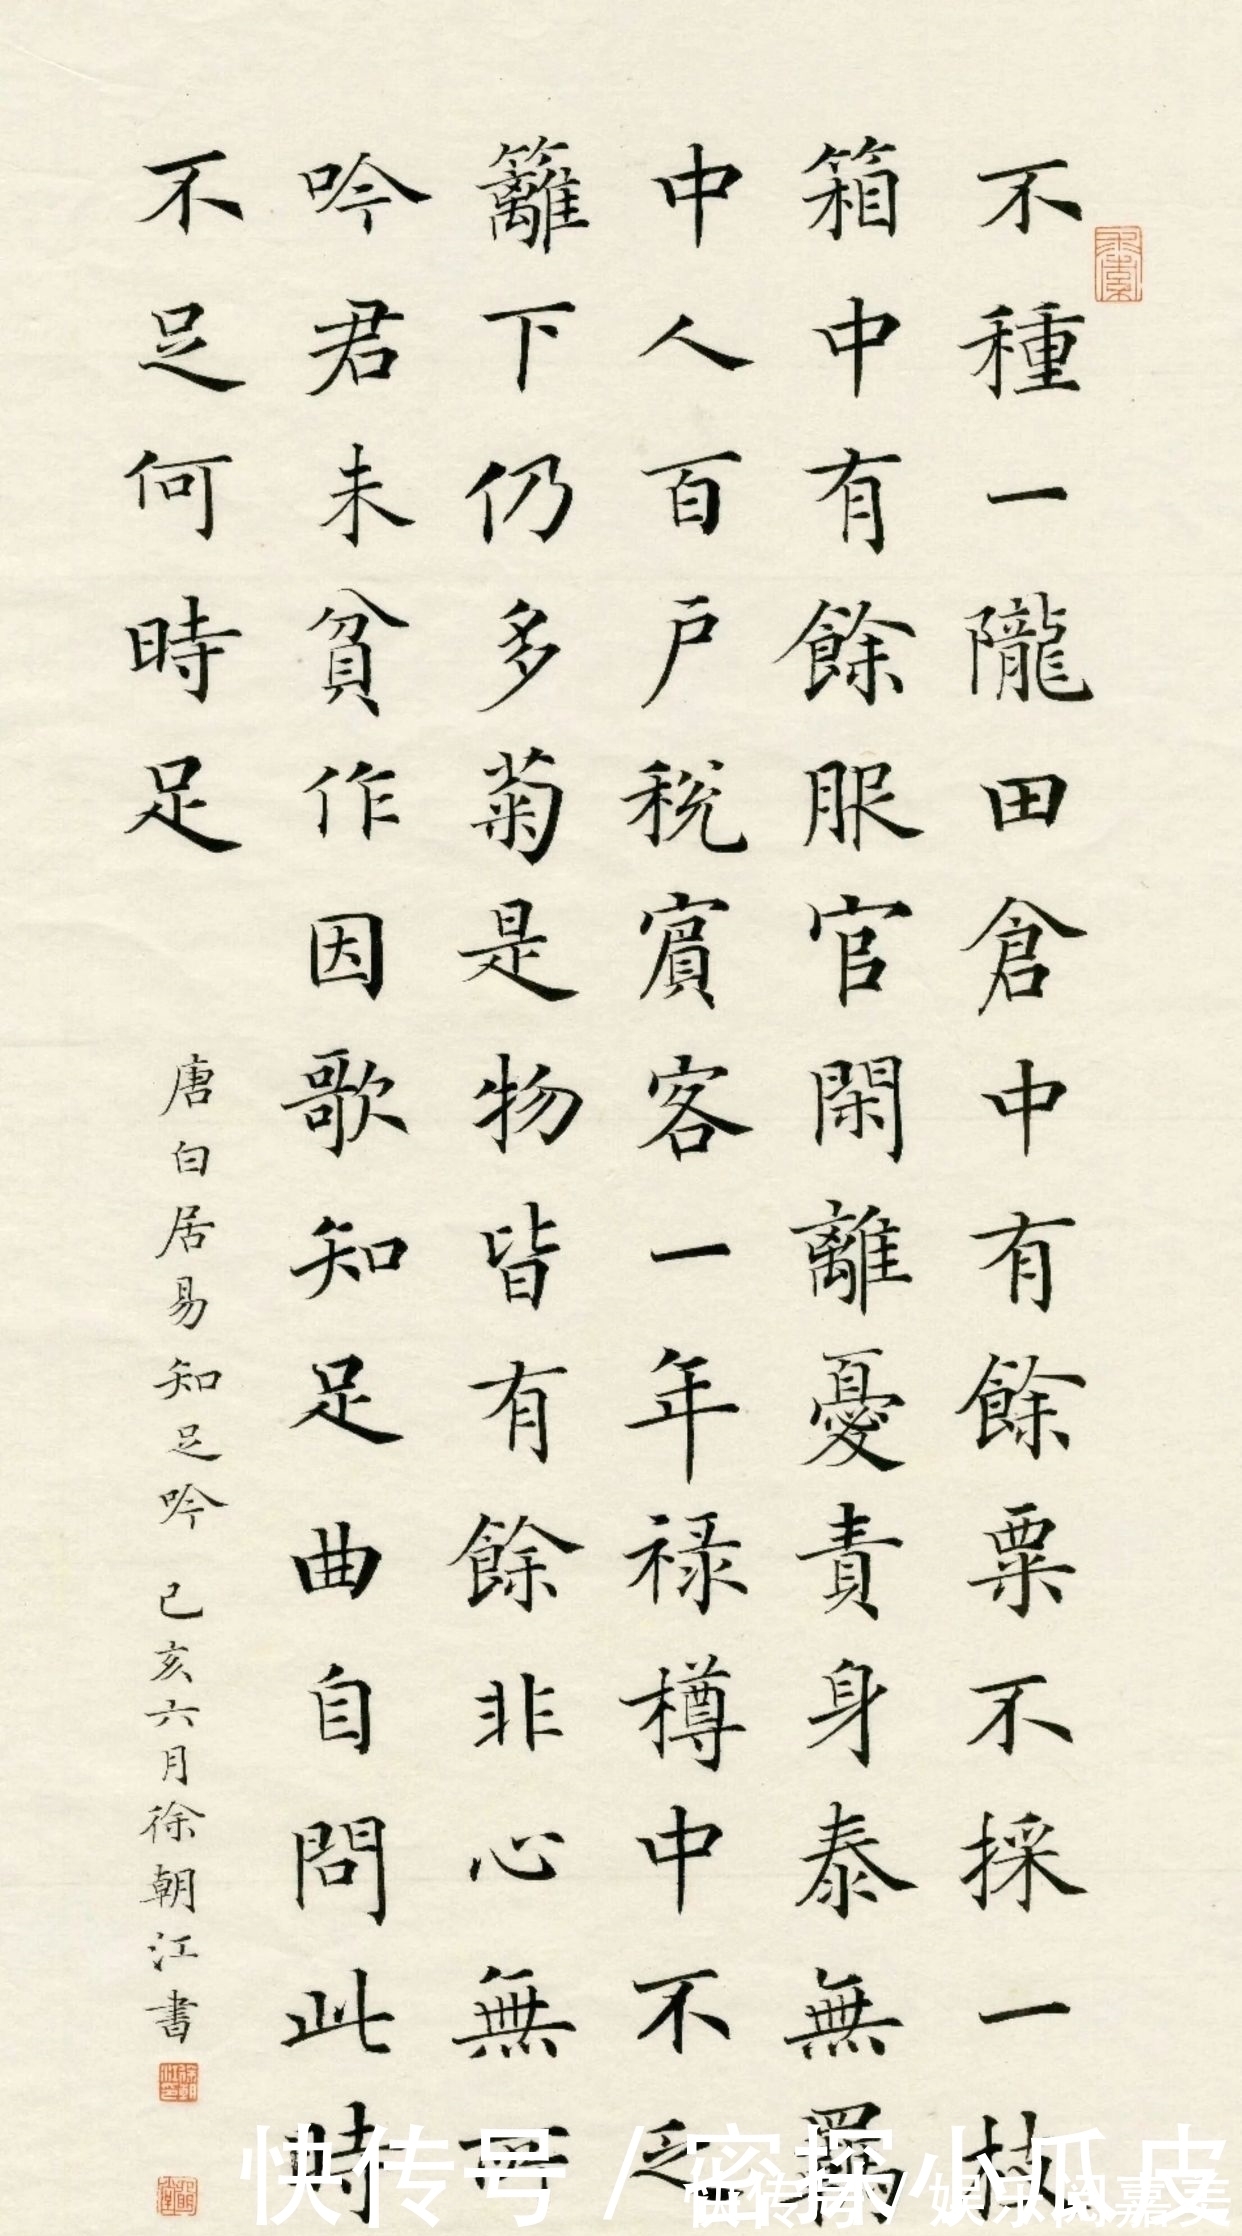 不種一隴田倉中有餘粟不採一枝
箱中有餘服官閑離憂責身泰無羈
中人百户税賓客一年禄樽中不乏
籬下仍多菊是物皆有餘非心無所
吟君未貧作因歌知足曲自問此時
不足何時足
唐白居易知足吟 己亥六月徐朝江書
快传号 / 密探小瓜皮
快传号 / 娱乐